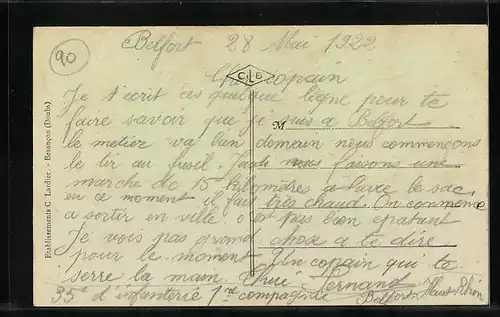 90
Belfort 28 Mai 1922
Cher copain
CLB
Je t'ecrit ces quelque ligne pour te
faire savoir que je suis a Belfort
M
le metier va bien domain nous commencons
le tir au fusil. Jeudi nous faisons une
marche de 15 kilomètres a farce le sac,
en ce moment il fait très chaud. On commence
a sortir en ville, c'est pas bien epatant
Je vois pas grand chose a te dire
pour le moment. Un copain qui te
serre la main. Fernand
35e d'infanterie 1re compagnie Belfort Haut Rhin
Etablissements C. Lardier. - Besançon (Doubs)